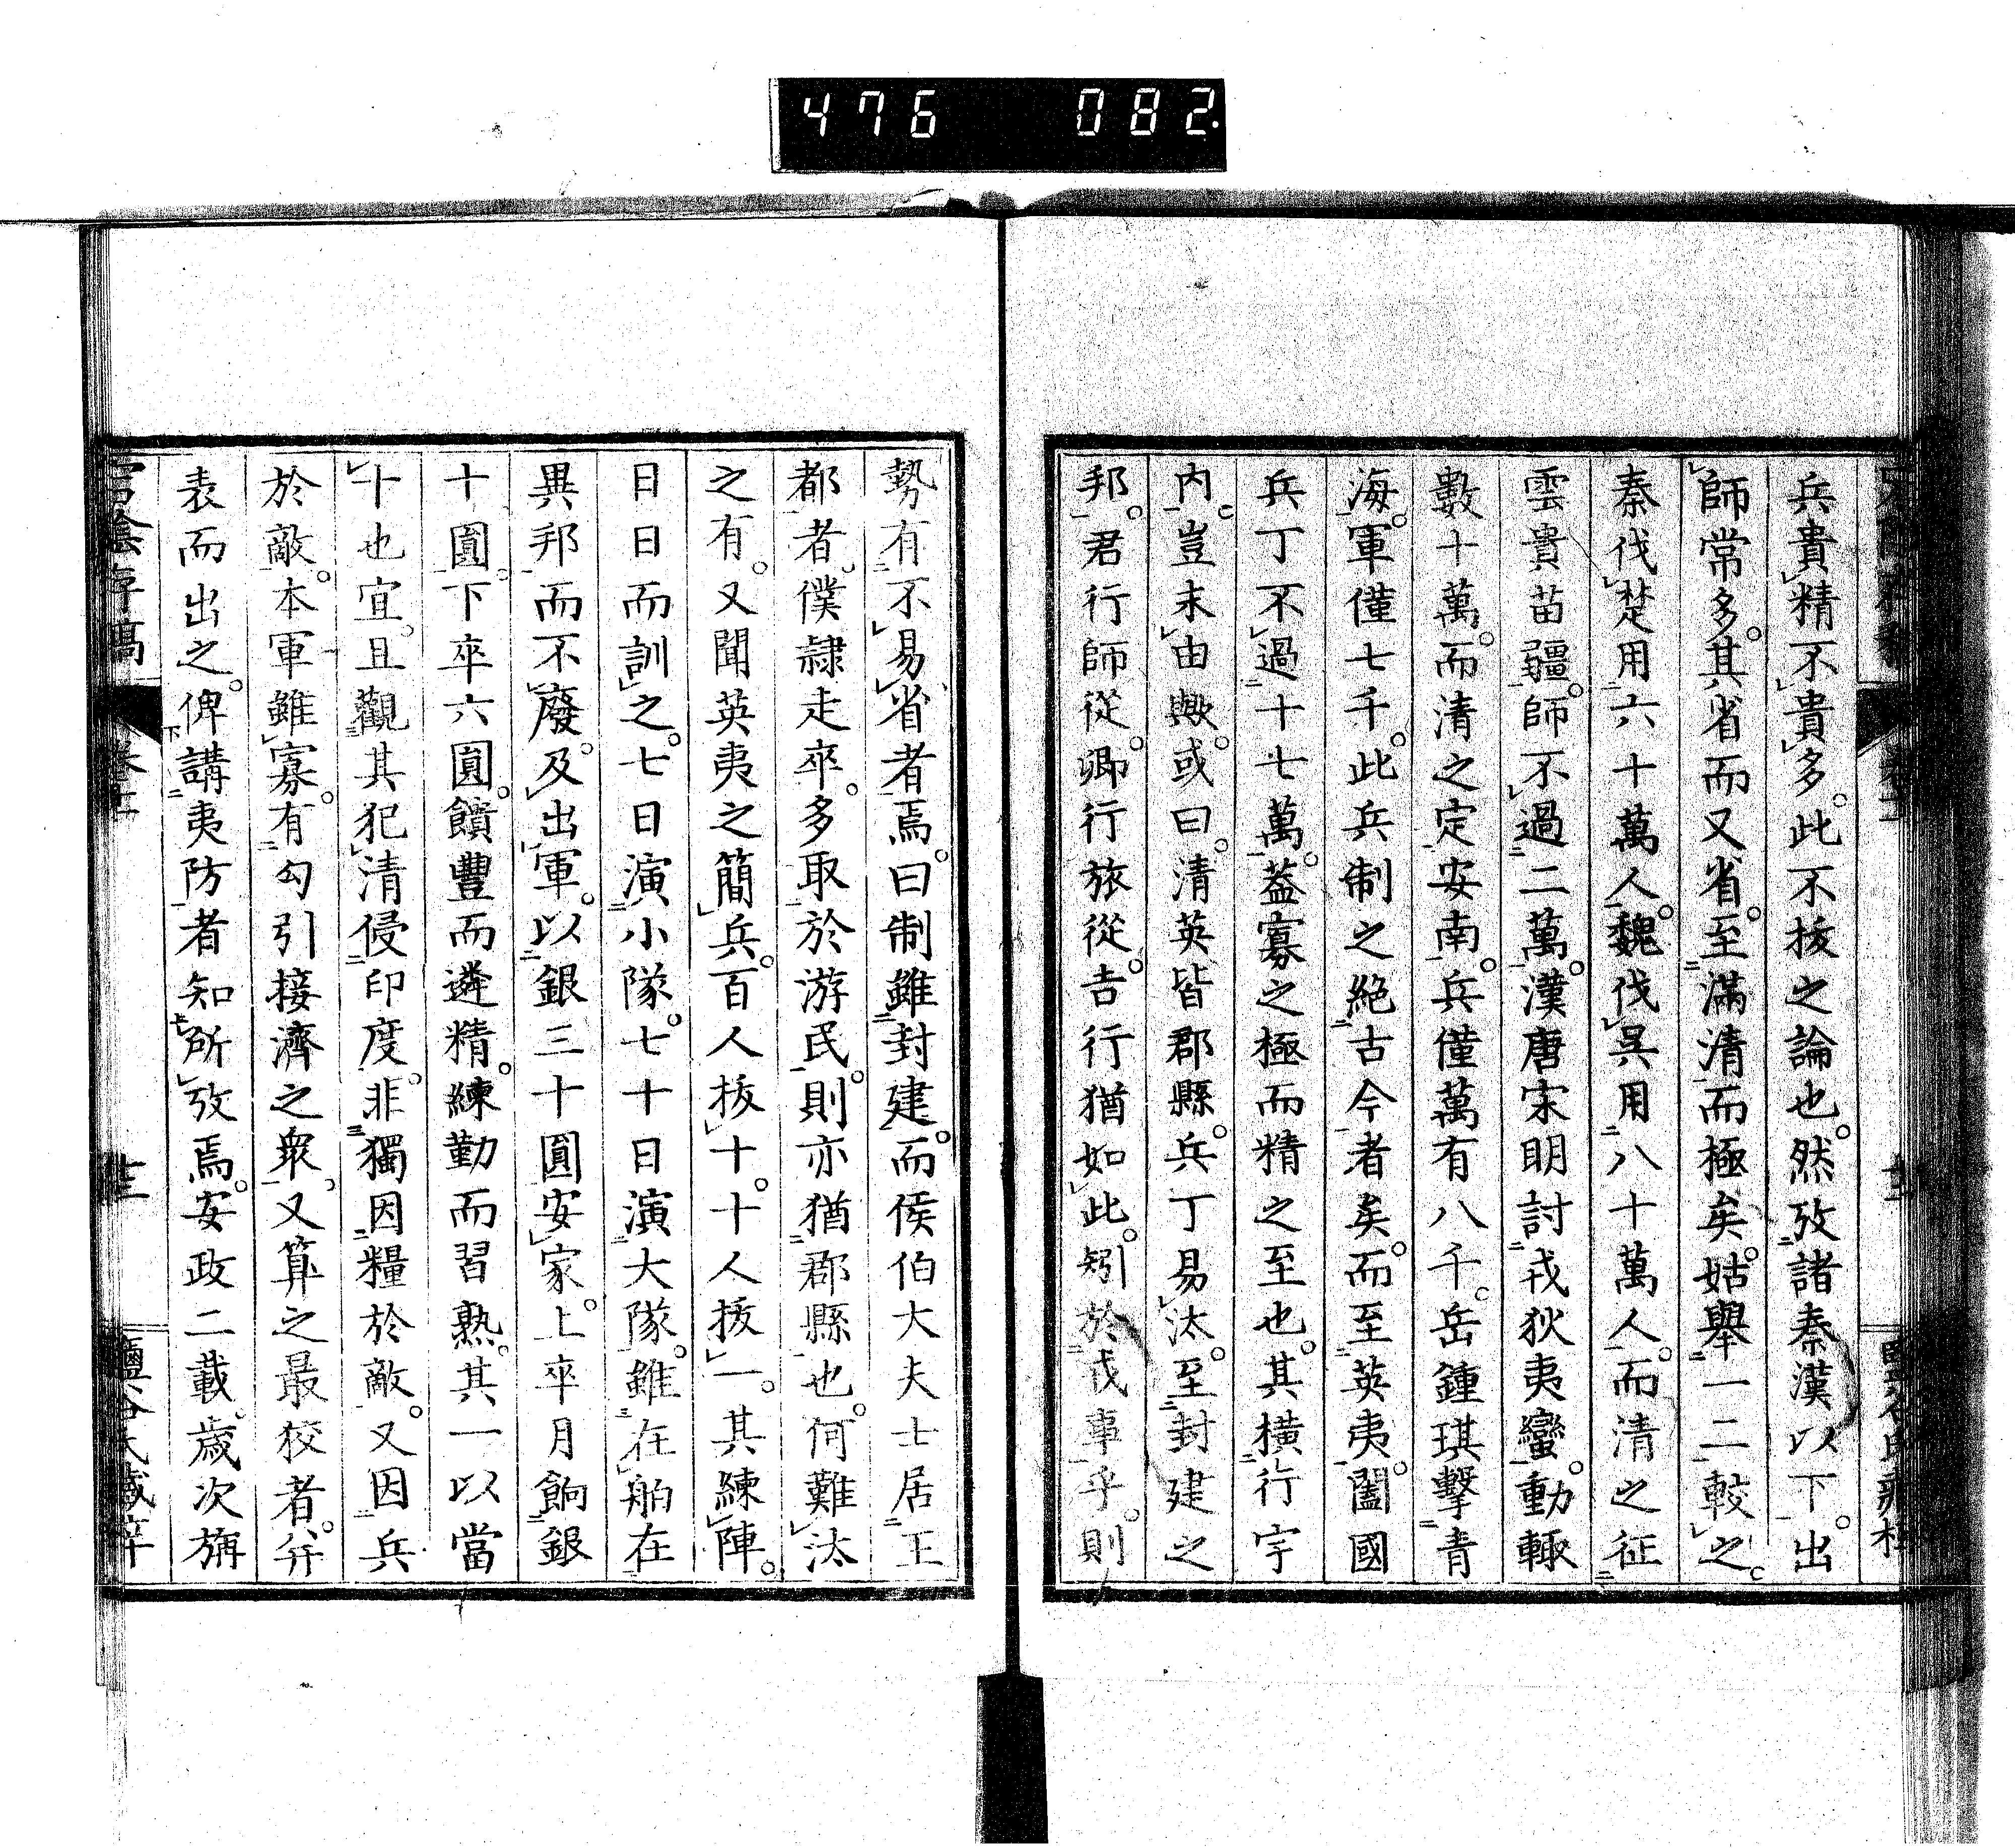 476 082
兵貴精不貴多。此不拔之論也。然攷諸秦漢以下。出
師常多。其省而又省。至滿清而極矣。姑舉一二較之。
秦伐楚用六十萬人。魏伐吳用八十萬人。而清之征
雲貴苗疆。師不過二萬。漢唐宋明討戎狄夷蠻。動輙
數十萬。而清之定安南。兵僅萬有八千。岳鍾琪擊青
海。軍僅七千。此兵制之絶古今者矣。而至英夷。闔國
兵丁不過十七萬。葢寡之極而精之至也。其橫行宇
內。豈末由歟。或曰。清英皆郡縣。兵丁易汰。至封建之
邦。君行師從。卿行旅從。吉行猶如此。矧於戎事乎。則
勢有不易省者焉。曰制雖封建。而侯伯大夫士居王
都者。僕隷走卒。多取於游民。則亦猶郡縣也。何難汰
之有。又聞英夷之簡兵。百人拔十。十人拔一。其練陣。
日日而訓之。七日演小隊。七十日演大隊。雖在舶在
異邦而不廢。及出軍。以銀三十圓安家。上卒月餉銀
十圓。下卒六圓。饋豐而遴精。練勤而習熟。其一以當
十也宜。且觀其犯清侵印度。非獨因糧於敵。又因兵
於敵。本軍雖寡。有勾引接濟之衆。又算之最狡者。幷
表而出之。俾講夷防者知所攷焉。安政二載。歲次旃
宕陰存稿 卷十一 十三 鹽谷氏藏梓